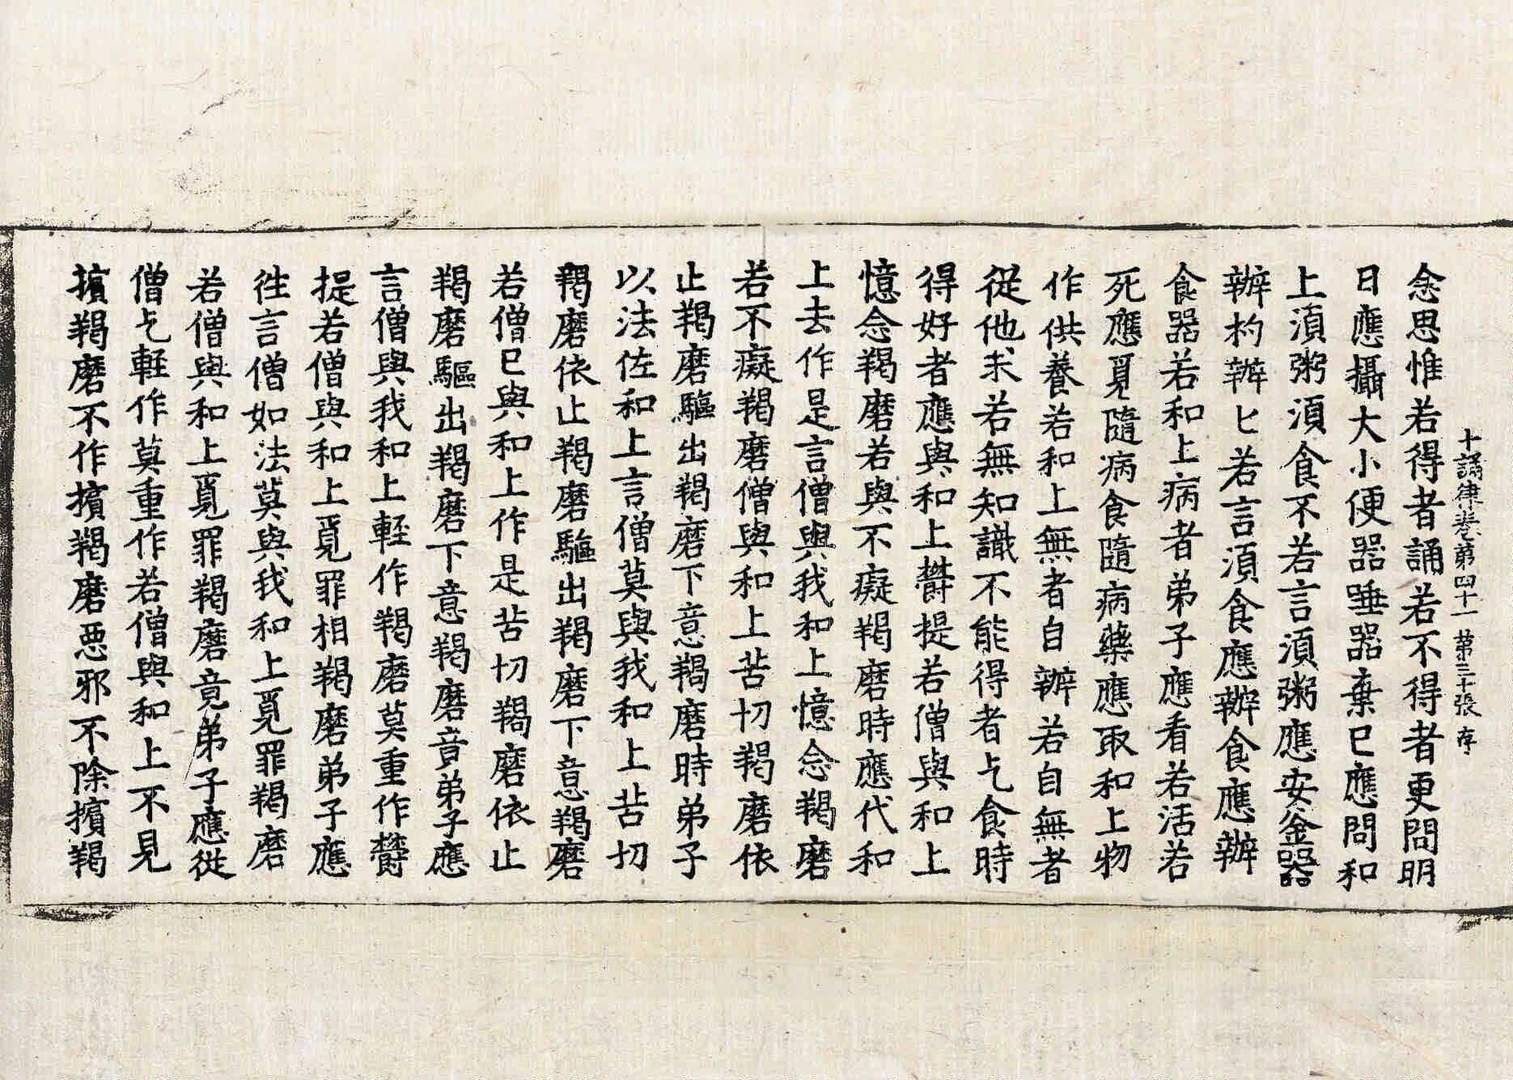 十誦律卷第四十一 第三十張 存
念思惟若得者誦若不得者更問明
日應攝大小便器唾器棄已應問和
上湏粥湏食不若言湏粥應安釜器
辦杓辦匕若言湏食應辦食應辦
食器若和上病者弟子應看若活若
死應覓隨病食隨病藥應取和上物
作供養若和上無者自辦若自無者
從他求若無知識不能得者乞食時
得好者應與和上欝提若僧與和上
憶念羯磨若與不癡羯磨時應代和
上去作是言僧與我和上憶念羯磨
若不癡羯磨僧與和上苦切羯磨依
止羯磨驅出羯磨下意羯磨時弟子
以法佐和上言僧莫與我和上苦切
羯磨依止羯磨驅出羯磨下意羯磨
若僧已與和上作是苦切羯磨依止
羯磨驅出羯磨下意羯磨竟弟子應
言僧與我和上軽作羯磨莫重作欝
提若僧與和上覓罪相羯磨弟子應
徃言僧如法莫與我和上覓罪羯磨
若僧與和上覓罪羯磨竟弟子應從
僧乞軽作莫重作若僧與和上不見
擯羯磨不作擯羯磨惡邪不除擯羯